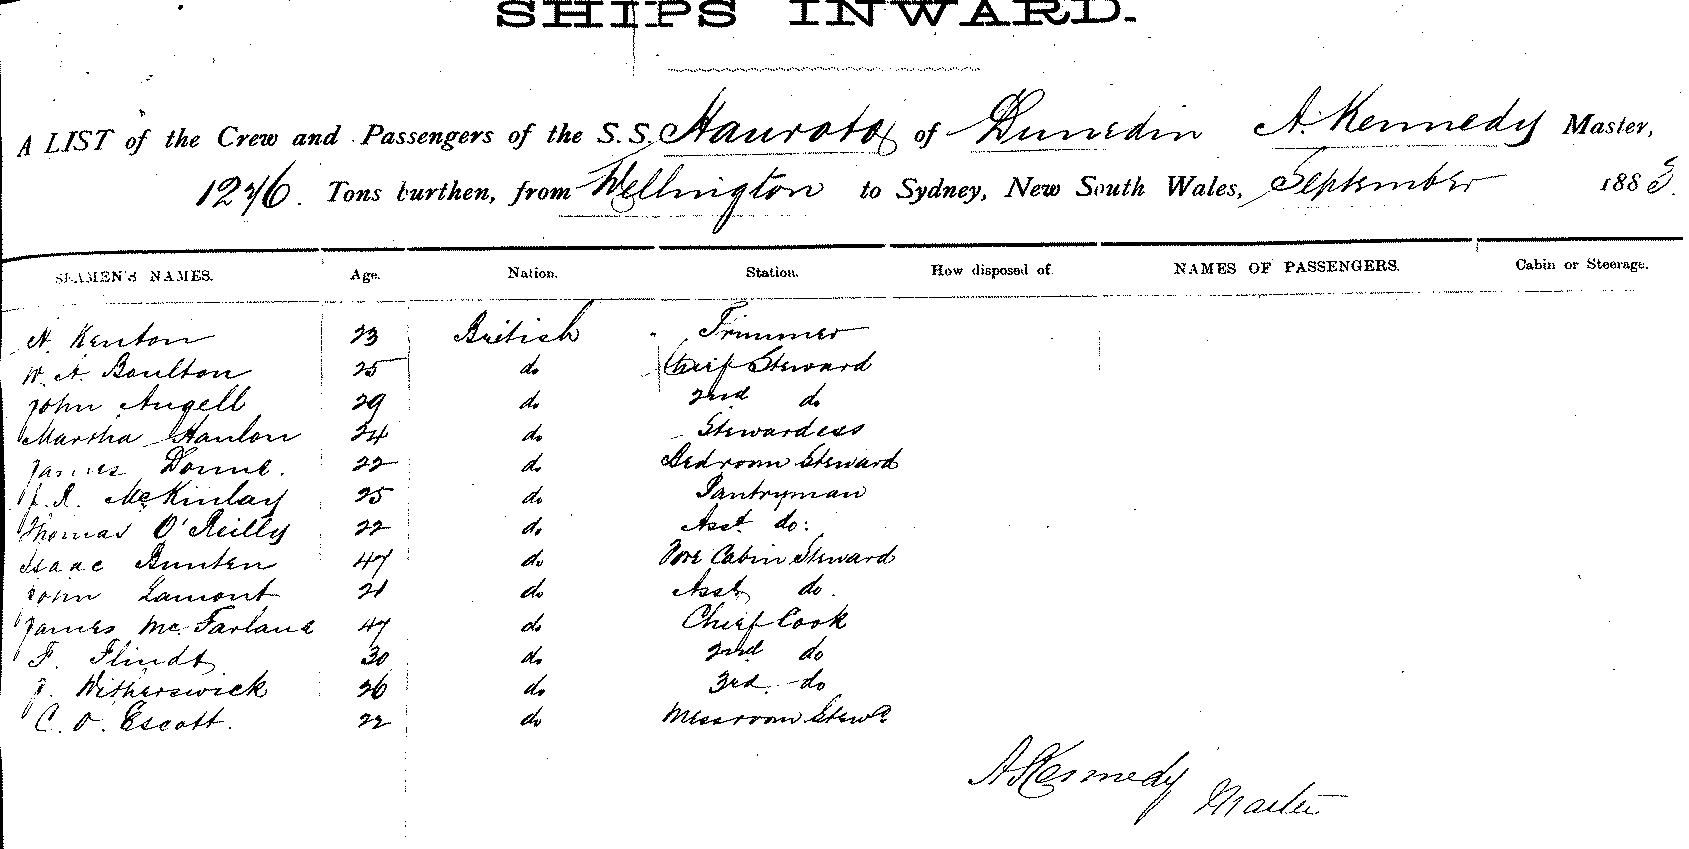 SHIPS INWARD.
A LIST of the Crew and Passengers of the S.S. Hauroto of Dunedin A. Kennedy Master,
1276. Tons burthen, from Wellington to Sydney, New South Wales, September 1883.
SEAMEN'S NAMES. Age. Nation. Station. How disposed of. NAMES OF PASSENGERS. Cabin or Steerage.
N. Kenton 23 British Trimmer
W. A. Boulton 25 do Chief Steward
John Angell 29 do 2nd do
Marsha Hanlon 24 do Stewardess
James Dorne. 22 do Bedroom Steward
J. R. McKinlay 25 do Pantryman
Thomas O'Reilly 22 do Asst. do:
Isaac Bunten 47 do Fore Cabin Steward
John Lamont 21 do Asst do.
James McFarlane 47 do Chief Cook
F. Flindt 30 do 2nd do
J. Witherswick 26 do 3rd. do
C. O. Escott. 22 do Messroom Stewd
A Kennedy
Master